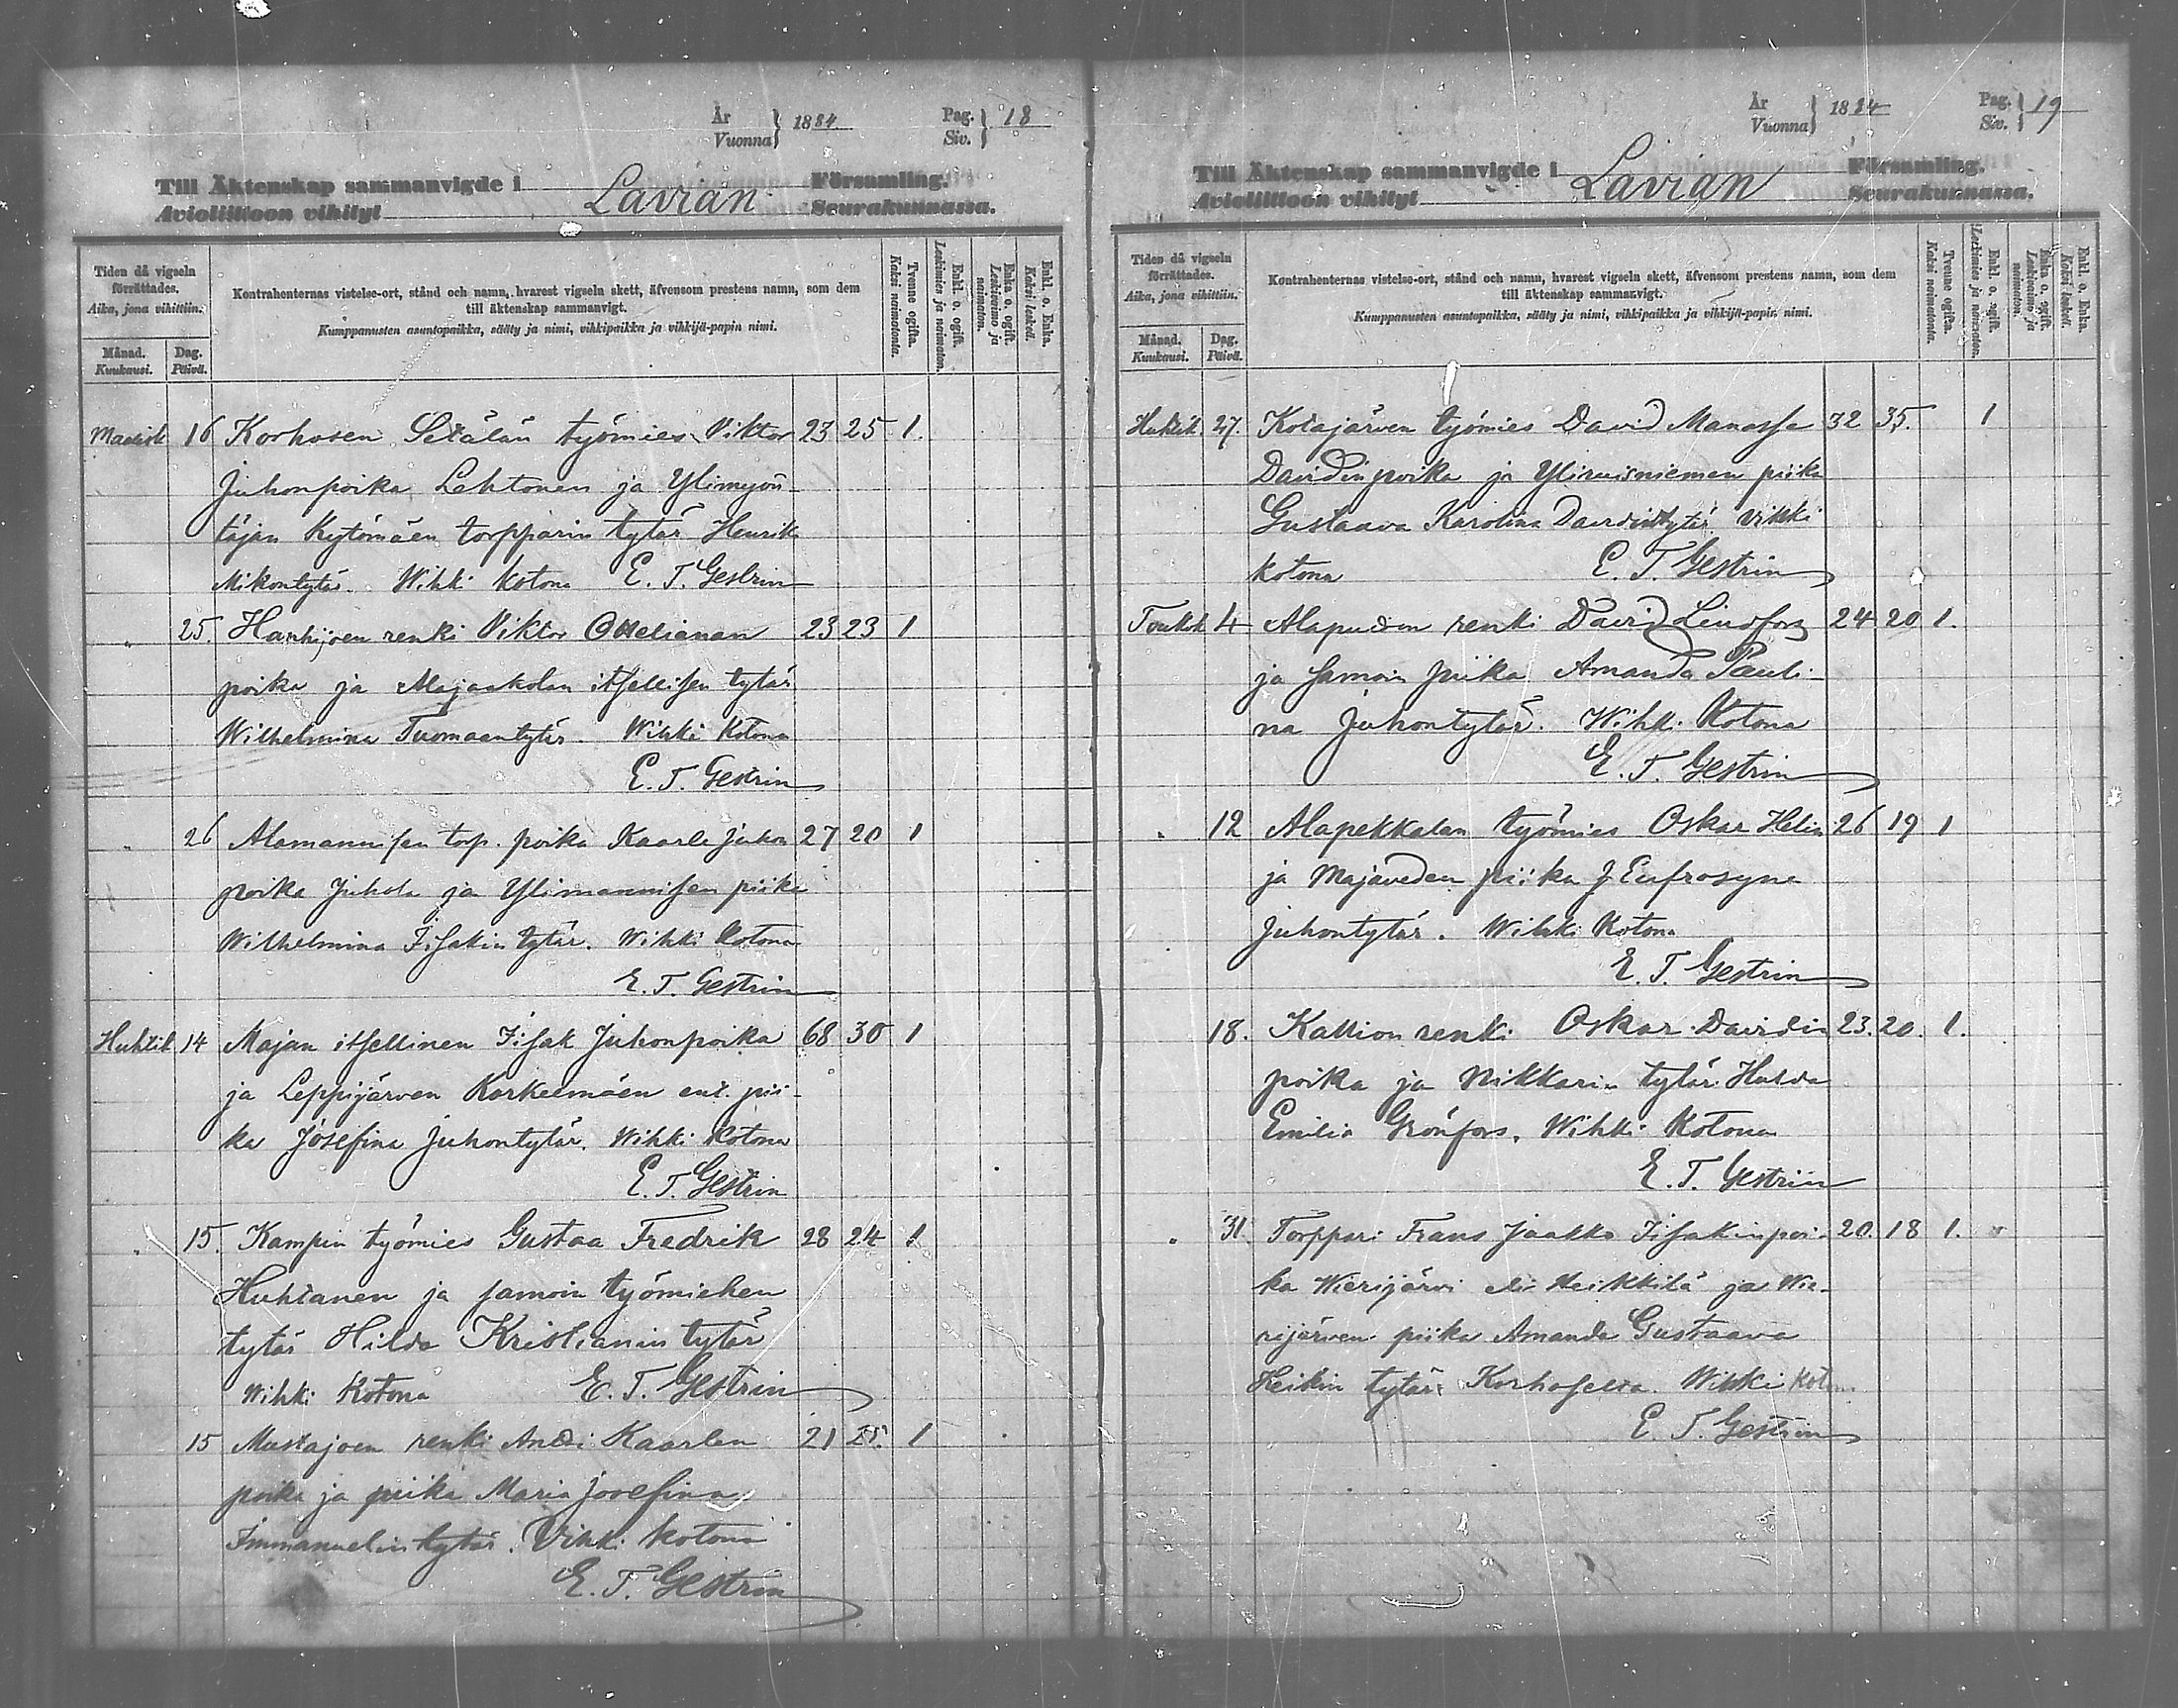 År
Vuonna } 1884
Pag.
Siv. } 18
Till Äktenskap sammanvigde i Församling.
Avioliittoon vihityt Lavian Seurakunnassa.
Tiden då vigseln förrättades.
Aika, jona vihittiin.
Månad.
Kuukausi.
Dag.
Päivä.
Kontrahenternas vistelse-ort, stånd och namn, hvarest vigseln skett, äfvensom prestens namn, som dem
till äktenskap sammanvigt.
Kumppanusten asuntopaikka, sääty ja nimi, vihkipaikka ja vihkijä-papin nimi.
Tvenne ogifta.
Kaksi naimatonta.
Enkl. o. ogift.
Leskimies ja naimaton.
Enka o. ogift.
Leskivaimo ja naimaton.
Enkl. o. Enka.
Kaksi leskeä.
Maalisk 16 Korhosen Setälän työmies Viktor 23 25 1.
Juhonpoika Lehtonen ja Ylimyön-
täjän Kytömäen torpparin tytär Henrika
Mikontytär. Wihki kotona E. T. Gestrin
„ 25. Hanhijoen renki Viktor Ottelianan 23 23 1
poika ja Alajaakolan itsellisen tytär
Wilhelmina Tuomaantytär. Wihki kotona
E. T. Gestrin
„ 26 Alamannisen torp. poika Kaarle Juhon 27 20 1
poika Juhola ja Ylimannisen piika
Wilhelmina Iisakin tytär. Wihki kotona
E. T. Gestrin
Huhtik 14 Majan itsellinen Iisak Juhonpoika 68 30 1
ja Leppijärven Korkeemäen ent. pii-
ka Josefina Juhontytär. Wihki kotona
E. T. Gestrin
„ 15. Kampin työmies Gustaa Fredrik 28 24 1
Huhtanen ja samoin työmiehen
tytär Hilda Kristianin tytär
Wihki kotona E. T. Gestrin
15 Mustajoen renki Antti Kaarlen 21 25. 1
poika ja piika Maria Josefina
Immanuelin tytär. Vihki kotona
E. T. Gestrin
År
Vuonna } 1884
Pag.
Siv. } 19
Till Äktenskap sammanvigde i Församling.
Avioliittoon vihityt Lavian Seurakunnassa.
Tiden då vigseln förrättades.
Aika, jona vihittiin.
Månad.
Kuukausi.
Dag.
Päivä.
Kontrahenternas vistelse-ort, stånd och namn, hvarest vigseln skett, äfvensom prestens namn, som dem
till äktenskap sammanvigt.
Kumppanusten asuntopaikka, sääty ja nimi, vihkipaikka ja vihkijä-papin nimi.
Tvenne ogifta.
Kaksi naimatonta.
Enkl. o. ogift.
Leskimies ja naimaton.
Enka o. ogift.
Leskivaimo ja naimaton.
Enkl. o. Enka.
Kaksi leskeä.
Huhtik. 27. Kotajärven työmies David Manasse 32 35. 1
Davidinpoika ja Yliruisniemen piika
Gustaava Karolina Davidintytär Vihki
kotona E. T. Gestrin
Toukok 4 renki David Lindfors 24 20 1.
ja samoin piika Amanda Pauli-
na Juhontytär. Wihki kotona
E. T. Gestrin
„ 12 Alapekkalan työmies Oskar Helin 26 19 1
ja Majaveden piika J Eufrosyne
Juhontytär. Wihki kotona
E. T. Gestrin
18. Kallion renki Oskar Davidin 23. 20. 1.
poika ja Nikkarin tytär Hulda
Emilia Grönfors. Wihki kotona
E. T. Gestrin
„ 31. Torppari Frans Jaakko Iisakinpoi- 20. 18 1.
ka Wierijärvi eli Heikkilä ja Wie-
rijärven piika Amanda Gustaava
Heikin tytär Korhoselta. Wihki koton.
E. T. Gestrin